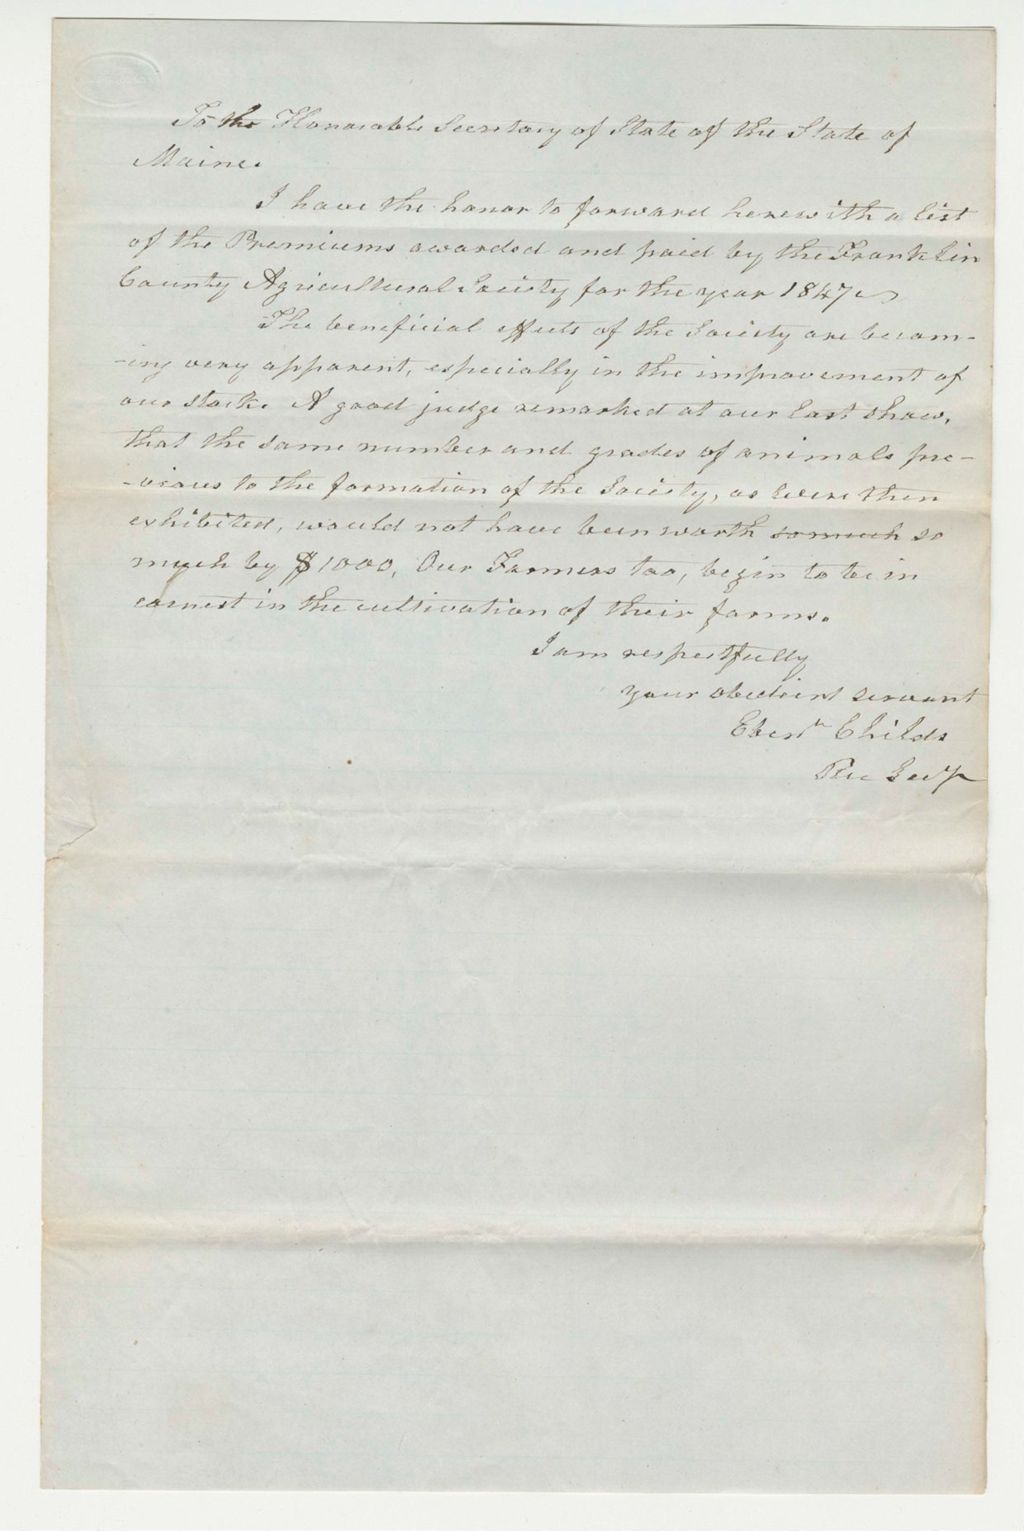 To the Honorable Secretary of State of the State of
Maine.
I have the honor to forward herewith a list
of the Premiums awarded and paid by the Franklin
County Agricultural Society for the year 1847
The beneficial effects of the Society are becom-
-ing very apparent, especially in the improvement of
our stock. A good judge remarked at our last show,
that the same number and grades of animals pre-
-vious to the formation of the Society, as were then
exhibited, would not have been worth so much so
much by $1000. Our Farmers too, begin to be in
earnest in the cultivation of their farms.
I am respectfully
your obedient servant
Ebenr Childs
Rec Secy